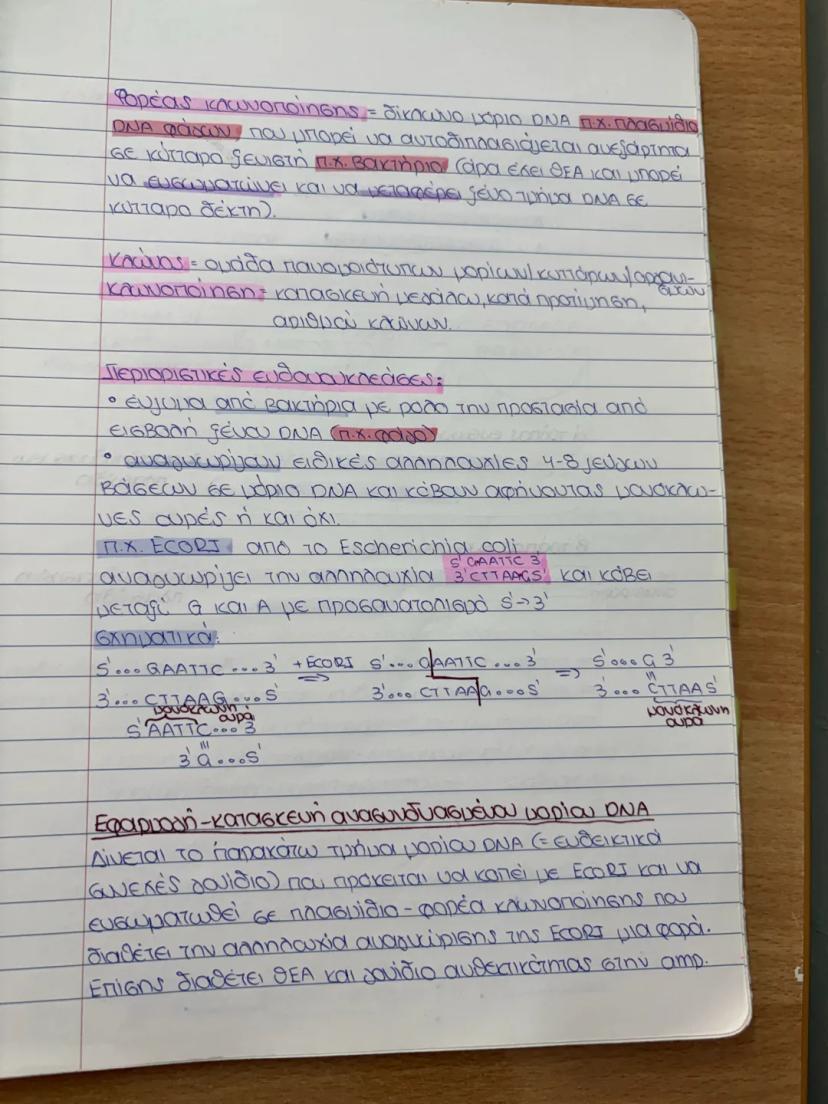 Φορέας κλωνοποίησης = δίκλωνο μόριο DNA π.χ. πλασμίδιο
DNA φάγων, που μπορεί να αυτοδιπλασιάζεται ανεξάρτητα
σε κύτταρο ξενιστή π.χ. βακτήριο (άρα έχει ΘΕΑ και μπορεί
να ενσωματώνει και να μεταφέρει ξένο τμήμα DNA σε
κύτταρο δέκτη).
Κλώνος = ομάδα πανομοιότυπων μορίων/κυττάρων/οργανι-
σμών
Κλωνοποίηση = κατασκευή μεγάλου, κατά προτίμηση,
αριθμού κλώνων.
Περιοριστικές ενδονουκλεάσες:
• ένζυμα από βακτήρια με ρόλο την προστασία από
εισβολή ξένου DNA (π.χ. φάγο)
• αναγνωρίζουν ειδικές αλληλουχίες 4-8 ζευγών
βάσεων σε μόριο DNA και κόβουν αφήνοντας μονόκλω-
νες ουρές ή και όχι.
π.χ. ECORI από το Escherichia coli
5' GAATTC 3'
αναγνωρίζει την αλληλουχία 3' CTTAAG 5' και κόβει
μεταξύ G και A με προσανατολισμό 5'→3'
σχηματικά:
5'... GAATTC ... 3' +ECORI ⇒ 5'... G AATTC ... 3' ⇒ 5'... G 3'
3'... CTTAAG ... 5' 3'... CTTAA G ... 5' 3'... CTTAA 5'
μονόκλωνη ουρά μονόκλωνη ουρά
5' AATTC ... 3'
3' G ... 5'
Εφαρμογή - κατασκευή ανασυνδυασμένου μορίου DNA
Δίνεται το παρακάτω τμήμα μορίου DNA (= ενδεικτικά
συνεχές γονίδιο) που πρόκειται να κοπεί με ECORI και να
ενσωματωθεί σε πλασμίδιο - φορέα κλωνοποίησης που
διαθέτει την αλληλουχία αναγνώρισης της ECORI μια φορά.
Επίσης διαθέτει ΘΕΑ και γονίδιο ανθεκτικότητας στην amp.